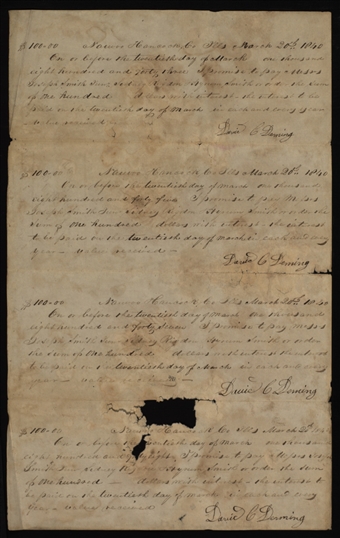 $100.00 Nauvoo Hancock Co Ills March 20th 1840
On or before the twentieth day of March one thousand
eight hundred and forty three I promise to pay Messrs
Joseph Smith Junr Sidney Rigdon Hyrum Smith or order the sum
of One hundred dollars with interest the interest to be
paid on the twentieth day of March in each and every year
value received
David C Deming
$100.00 Nauvoo Hancock Co Ills March 20th 1840
On or before the twentieth day of March one thousand
eight hundred and forty I promise to pay Messrs
Joseph Smith Jun Sidney Rigdon Hyrum Smith or order the
sum of One hundred dollars with interest the interest
to be paid on the twentieth day of March in each and every
year value received
David C Deming
$100.00 Nauvoo Hancock Co Ills March 20th 1840
On or before the twentieth day of March one thousand
eight hundred and forty I promise to pay Messrs
Joseph Smith Jun Sidney Rigdon Hyrum Smith or order
the sum of One hundred dollars with interest the interest
to be paid on the twentieth day of March in each and every
year value
David C Deming
$100.00 Hancock Co Ills March 20th
On or before the twentieth day of March one thousand
eight hundred and I promise to pay Messrs Joseph
Smith Jun Sidney Rigdon Hyrum Smith or order the sum
of One hundred dollars with interest the interest to
be paid on the twentieth day of March in each and every
year value received
David C Deming